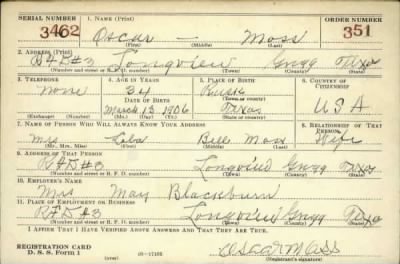 SERIAL NUMBER 1. NAME (Print) ORDER NUMBER
3462 Oscar — Moss 351
(First) (Middle) (Last)
2. ADDRESS (Print)
RFD#3 Longview Gregg Texas
(Number and street or R. F. D. number) (Town) (County) (State)
3. TELEPHONE 4. AGE IN YEARS 5. PLACE OF BIRTH 6. COUNTRY OF CITIZENSHIP
None 34 Rusk
DATE OF BIRTH (Town or county)
March 12 1906 Texas USA
(Exchange) (Number) (Mo.) (Day) (Yr.) (State or country)
7. NAME OF PERSON WHO WILL ALWAYS KNOW YOUR ADDRESS 8. RELATIONSHIP OF THAT PERSON
Mrs Bell Moss Wife
(Mr., Mrs., Miss) (First) (Middle) (Last)
9. ADDRESS OF THAT PERSON
RFD#3 Longview Gregg Texas
(Number and street or R. F. D. number) (Town) (County) (State)
10. EMPLOYER'S NAME
Mrs May Blackburn
11. PLACE OF EMPLOYMENT OR BUSINESS
RFD#3 Longview Gregg Texas
(Number and street or R. F. D. number) (Town) (County) (State)
I AFFIRM THAT I HAVE VERIFIED ABOVE ANSWERS AND THAT THEY ARE TRUE.
REGISTRATION CARD
D. S. S. Form 1 (over) 16-17105 Oscar Moss
(Registrant's signature)